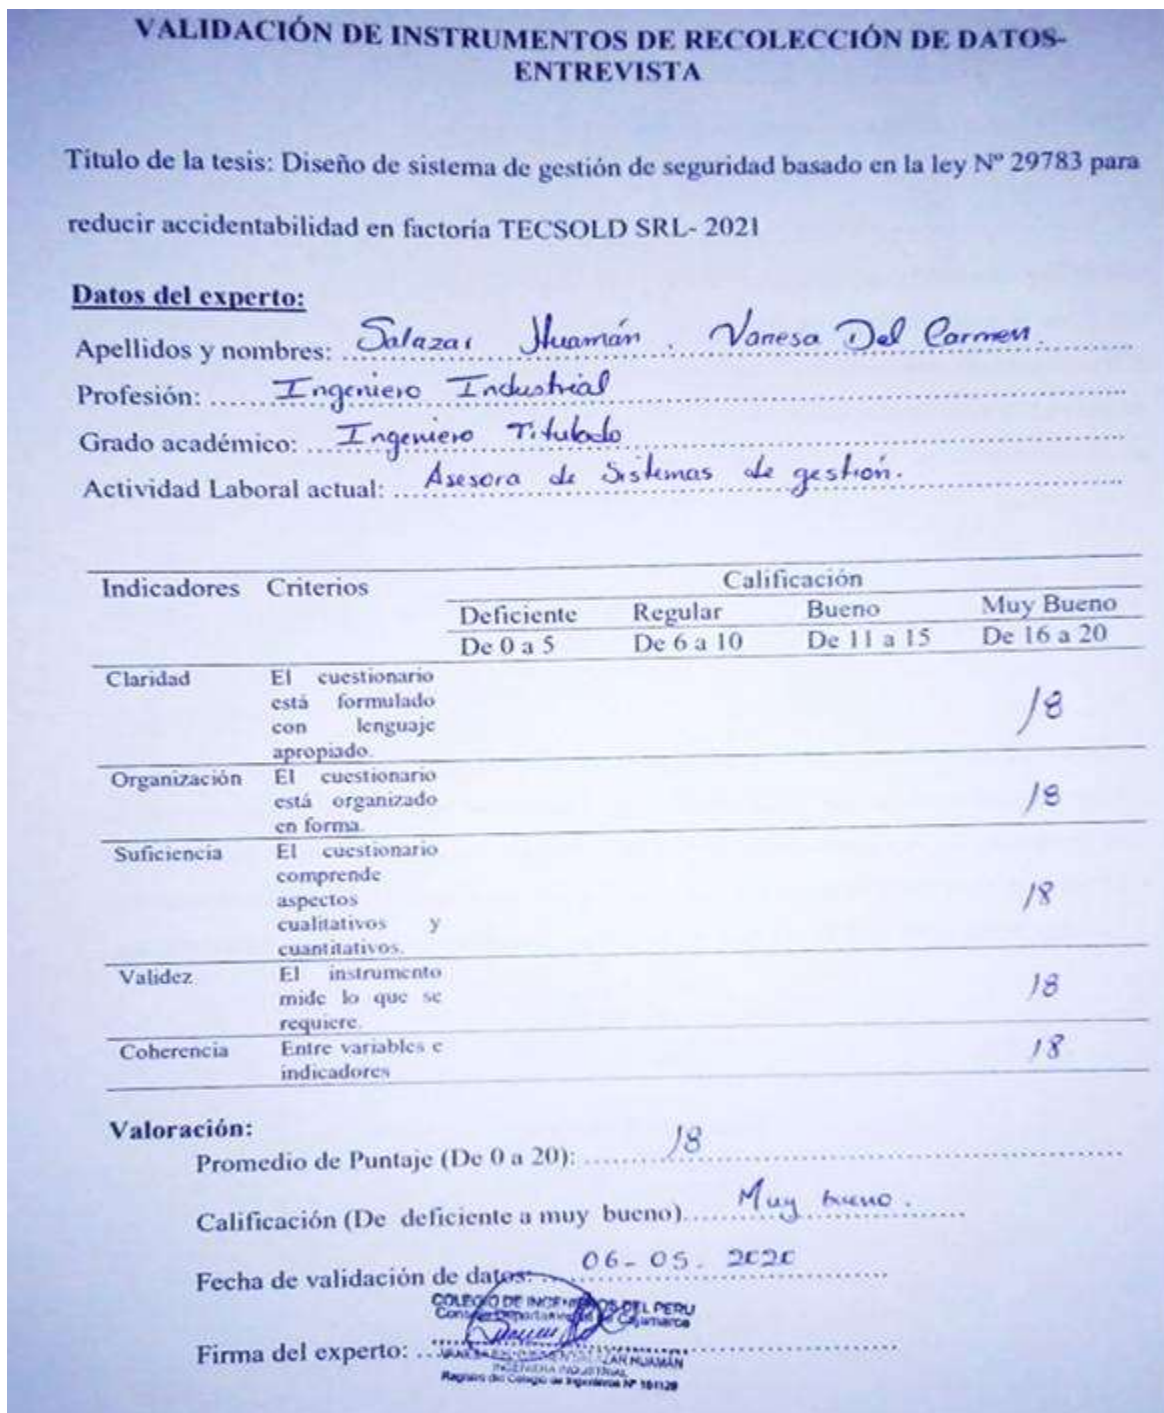 VALIDACIÓN DE INSTRUMENTOS DE RECOLECCIÓN DE DATOS-
ENTREVISTA
Título de la tesis: Diseño de sistema de gestión de seguridad basado en la ley Nº 29783 para
reducir accidentabilidad en factoría TECSOLD SRL- 2021
Datos del experto:
Apellidos y nombres: Salazar Huamán. Vanesa Del Carmen.
Profesión: Ingeniero Industrial
Grado académico: Ingeniero Titulado
Actividad Laboral actual: Asesora de Sistemas de gestión.
Indicadores Criterios Calificación
Deficiente Regular Bueno Muy Bueno
De 0 a 5 De 6 a 10 De 11 a 15 De 16 a 20
Claridad El cuestionario
está formulado
con lenguaje
apropiado.
18
Organización El cuestionario
está organizado
en forma.
18
Suficiencia El cuestionario
comprende
aspectos
cualitativos y
cuantitativos.
18
Validez El instrumento
mide lo que se
requiere.
18
Coherencia Entre variables e
indicadores
18
Valoración:
Promedio de Puntaje (De 0 a 20): 18
Calificación (De deficiente a muy bueno) Muy bueno.
Fecha de validación de datos: 06-05.2020
COLEGIO DE INGENIEROS DEL PERU
Cajamarca
Firma del experto:
SALAZAR HUAMÁN
INGENIERA INDUSTRIAL
Registro del Colegio de Ingenieros Nº